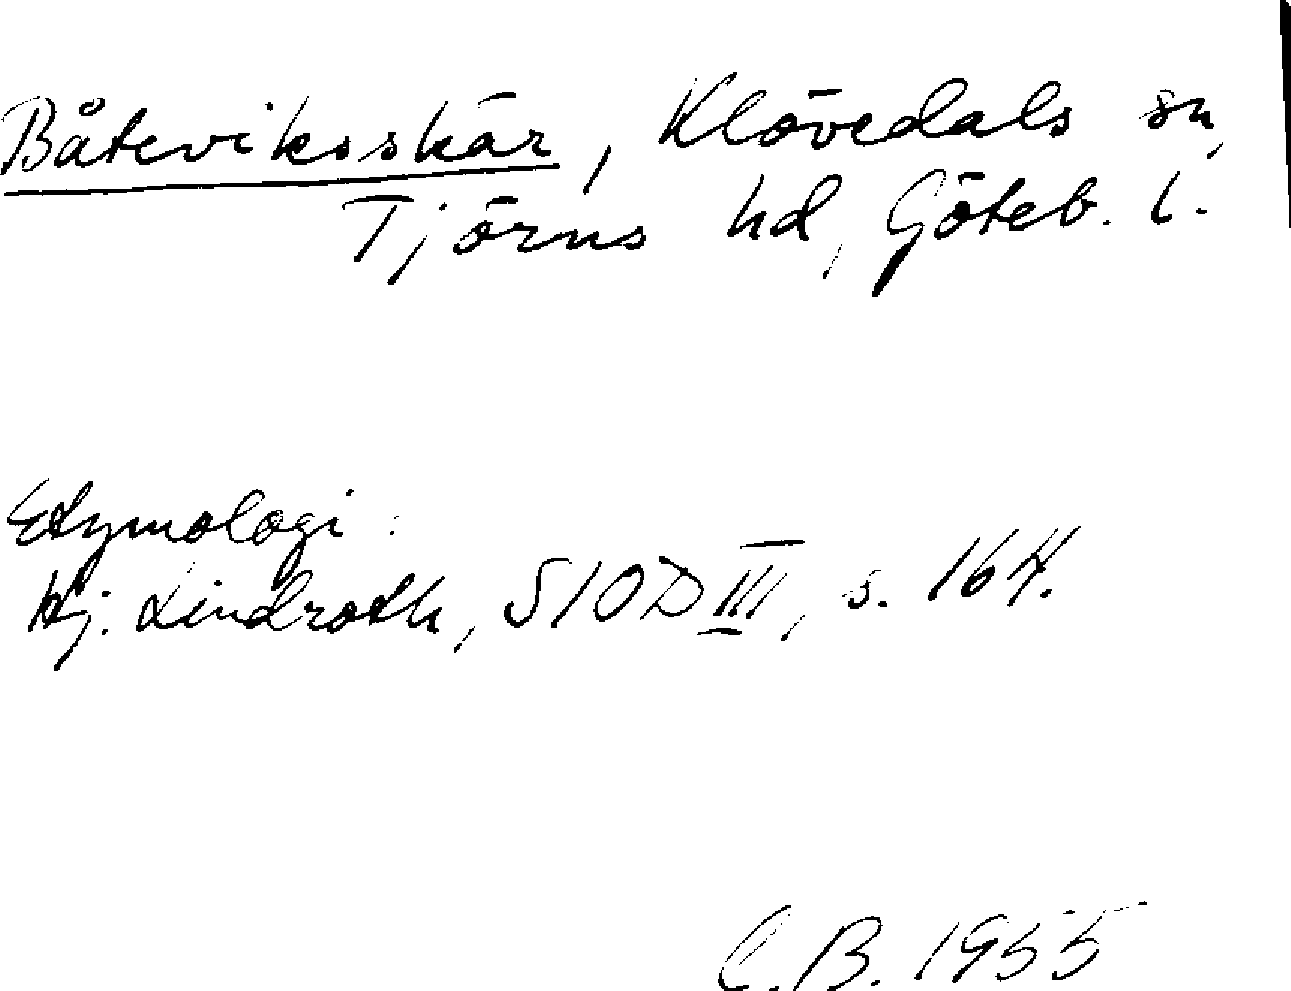 Båteviksskär, Klövedals sn,
Tjörns hd, Göteb. l.
Etymologi:
Hj. Lindroth, SIOD III, s. 164.
C.B. 1955